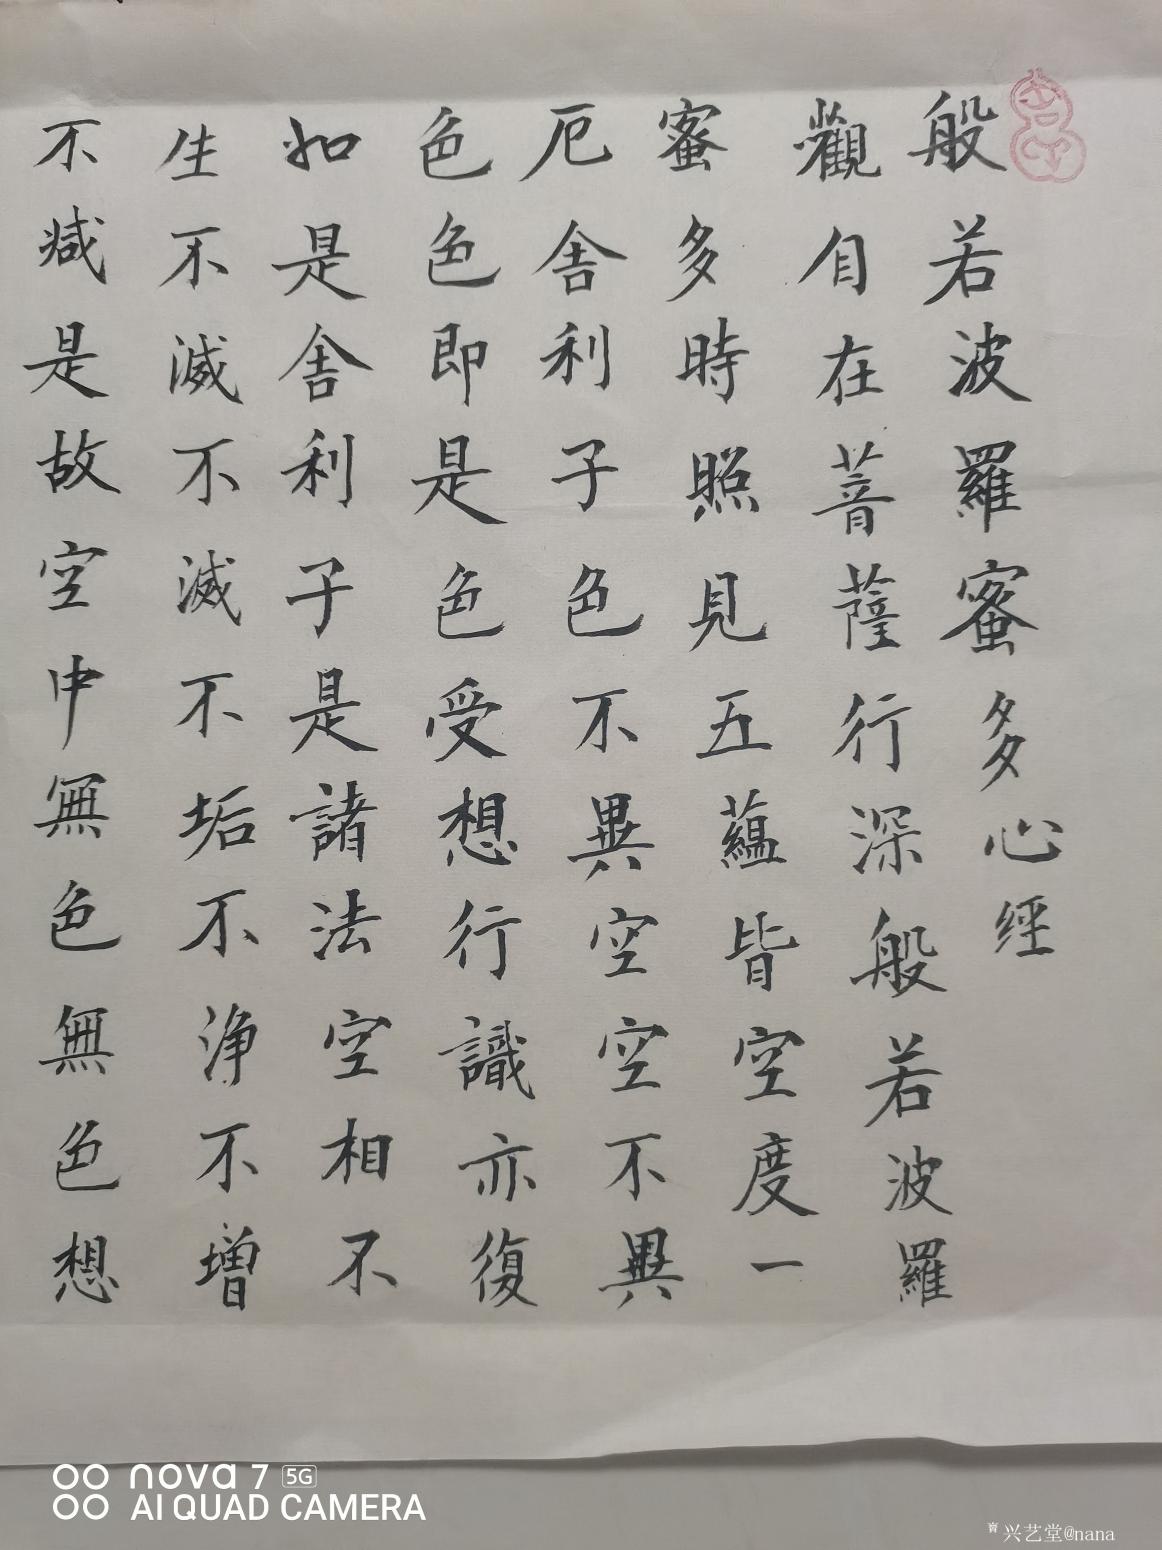 般若波羅蜜多心經
觀自在菩薩行深般若波羅
蜜多時照見五蘊皆空度一
厄舍利子色不異空空不異
色色即是色受想行識亦復
如是舍利子是諸法空相不
生不滅不滅不垢不淨不增
不減是故空中無色無色想
nova 7 5G
AI QUAD CAMERA
兴艺堂@nana